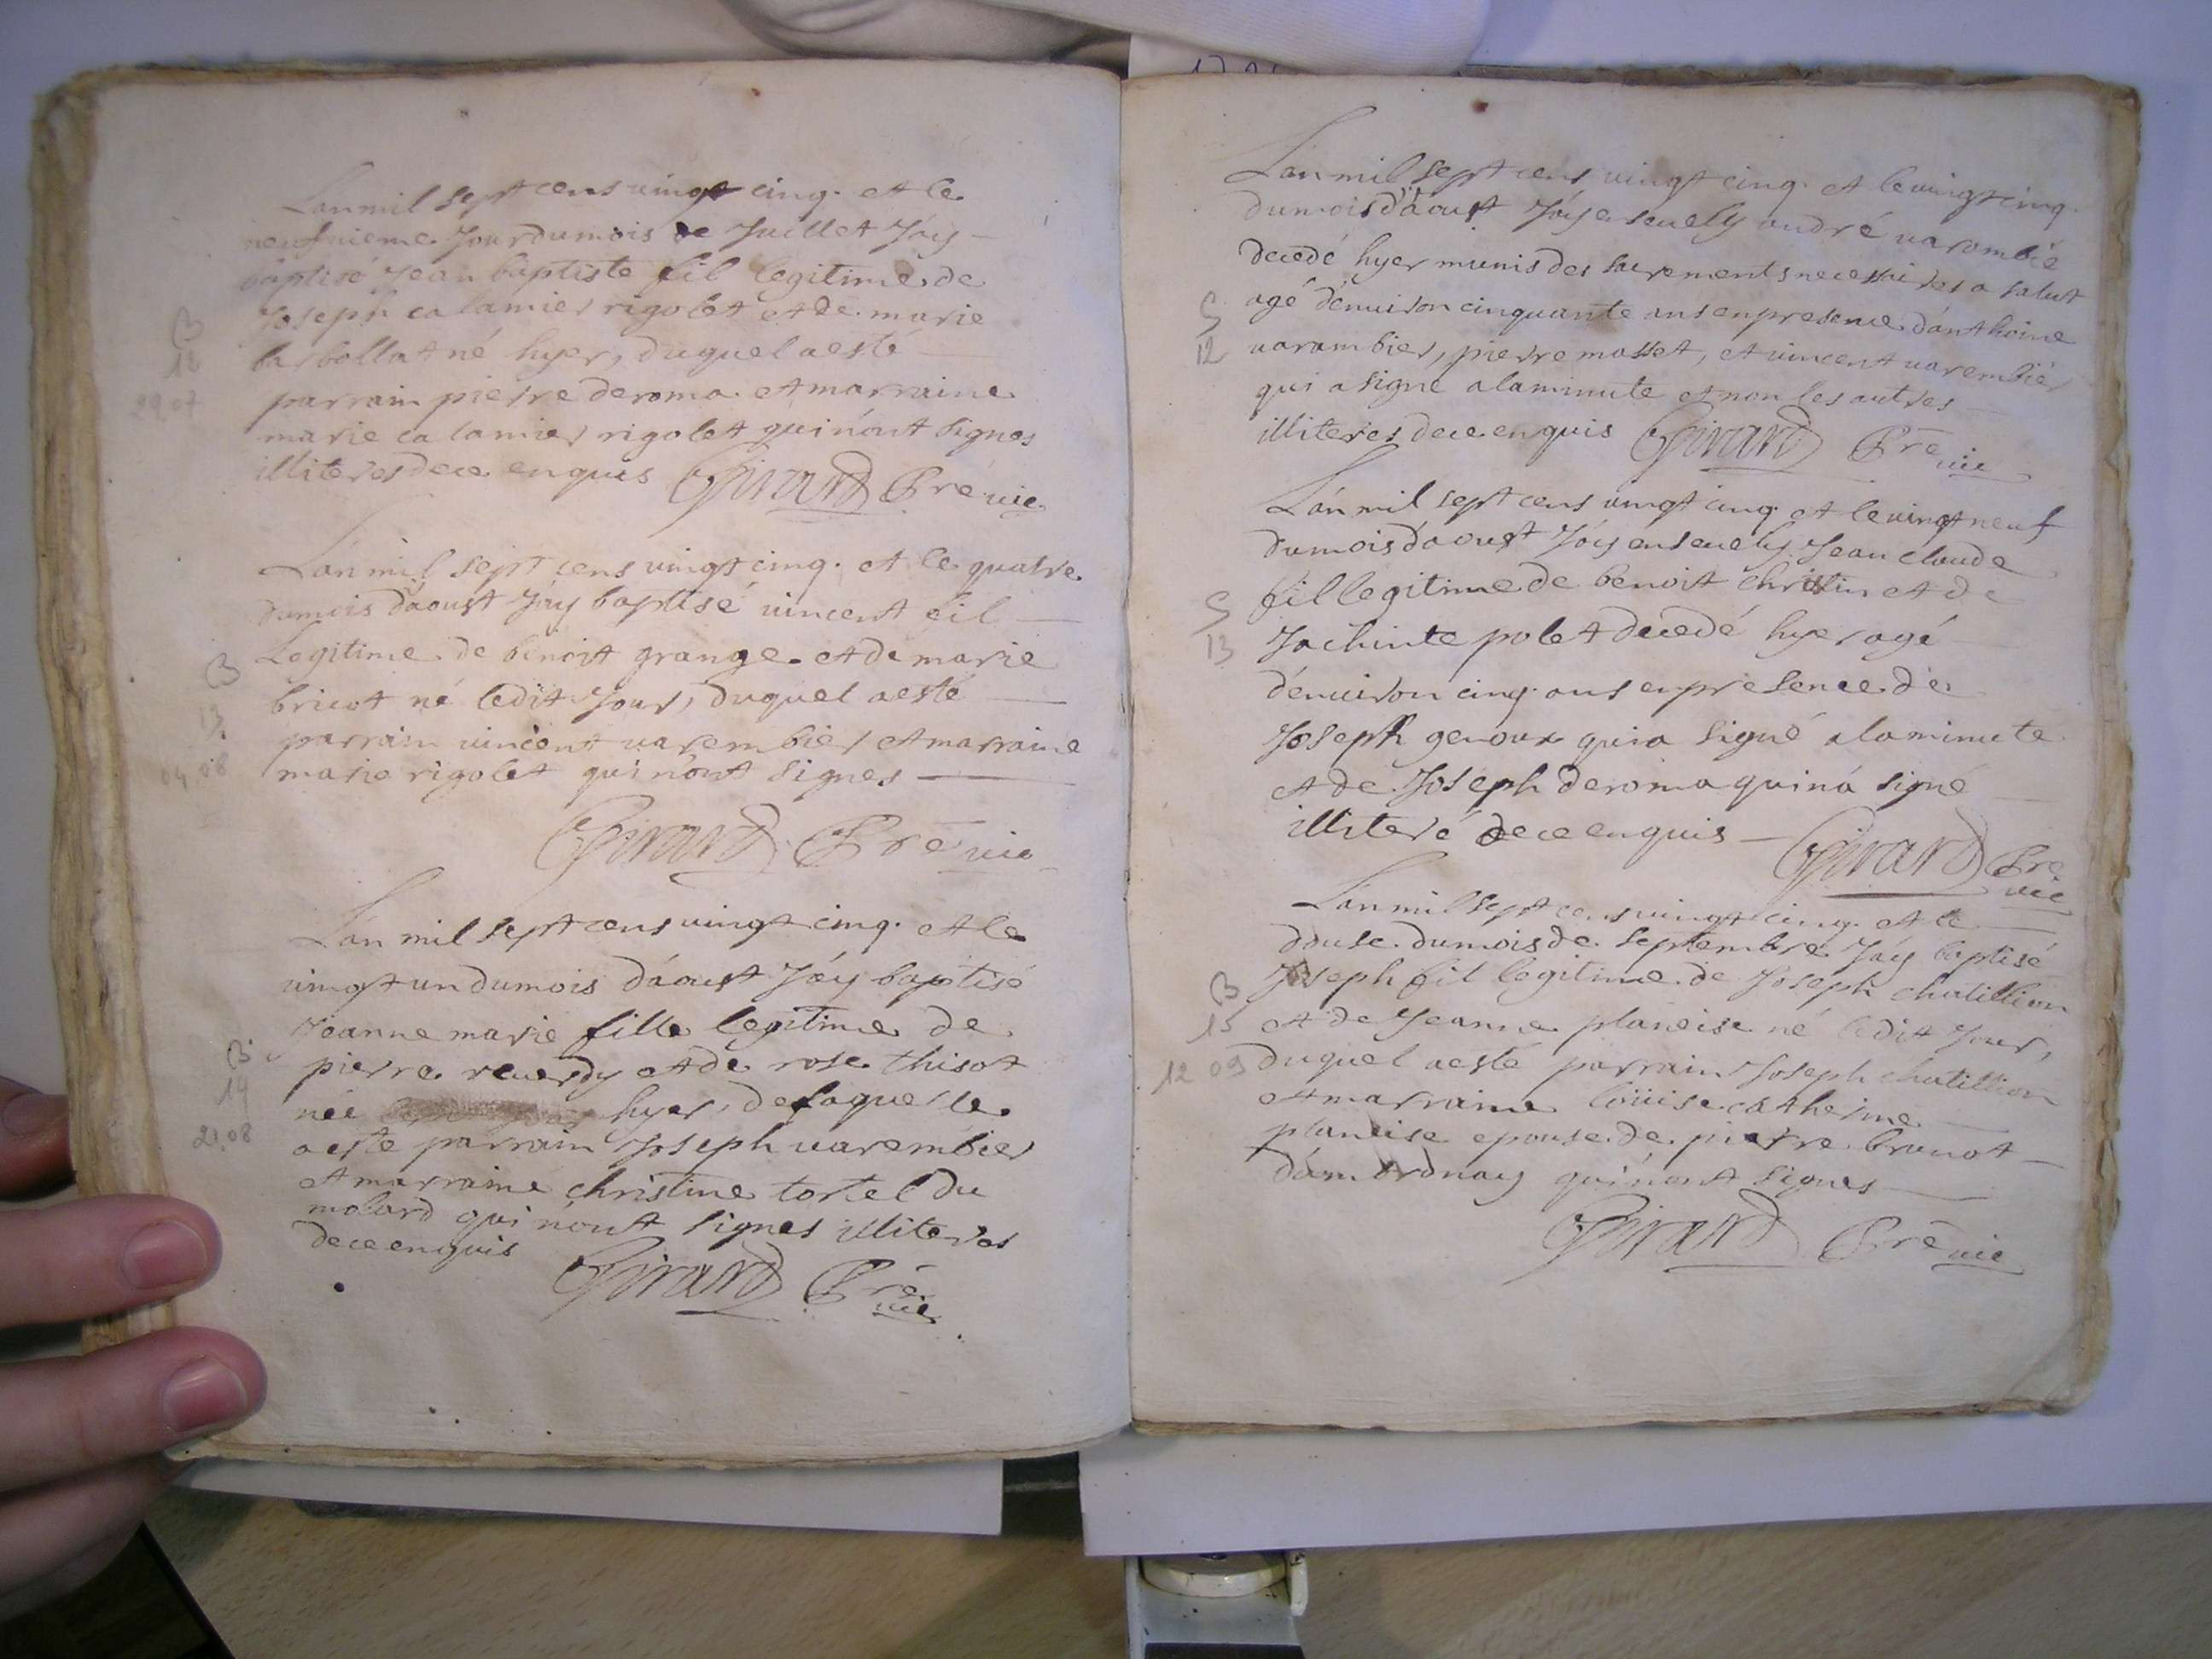 Lan mil sept cens vingt cinq. et le
neufvieme Jour du mois de Juillet Jáy
baptisé Jean baptiste fil legitime de
Joseph calamier rigolet et de marie
barbollat né hyer, duquel a esté
B
12
09.07
parrain pierre deroma et marraine
marie calamier rigolet qui nónt signes
illiteres de ce enquis Girard Pre vic

Lán mil sept cens vingt cinq. et le quatre
du mois dáoust Jáy baptisé vincent fil
Legitime de benoit grange et de marie
bricot né ledit Jour, duquel a esté
B
13
04.08
parrain vincent varembier et marraine
marie rigolet qui nónt signes
Girard Pre vic

Lán mil sept cens vingt cinq. et le
vingt un du mois dáoust Jáy baptisé
Jeanne marie fille legitime de
pierre reverdy et de rose thisot
née hyer, de laquelle
B
14
21.08
a esté parrain Joseph varembier
et marraine christine tortel du
molard qui nónt signes illiteres
de ce enquis
Girard Pre vic

17
Lán mil sept cens vingt cinq. et le vingt cinq
du mois dáoust Jáy ensevely andré varombié
decedé hyer munis des sacrements necessaires a salut
agé dénviron cinquante ans en presence dánthoine
S
12
varambier, pierre masset, et vincent varembier
qui a signé a la minute et non les autres
illiteres de ce enquis Girard Pre vic

Lán mil sept cens vingt cinq. et le vingt neuf
du mois dáoust Jáy ensevely Jean claude
fil legitime de benoit christin et de
S
13
Jachinte polet decedé hyer agé
dénviron cinq. ans en presence de
Joseph genoux qui a signé a la minute
et de Joseph deroma qui ná signé
illiteré de ce enquis Girard Pre
vic

Lán mil sept cens vingt cinq. et le
douse du mois de septembre Jáy baptisé
Joseph fil legitime de Joseph chatillion
B
15
12 09
et de Jeanne planeise né ledit Jour,
duquel a esté parrain Joseph chatillion
et marraine loüise catherine
planeise epouse de pierre brunot
dámbrdnay qui nónt signes
Girard Pre vic